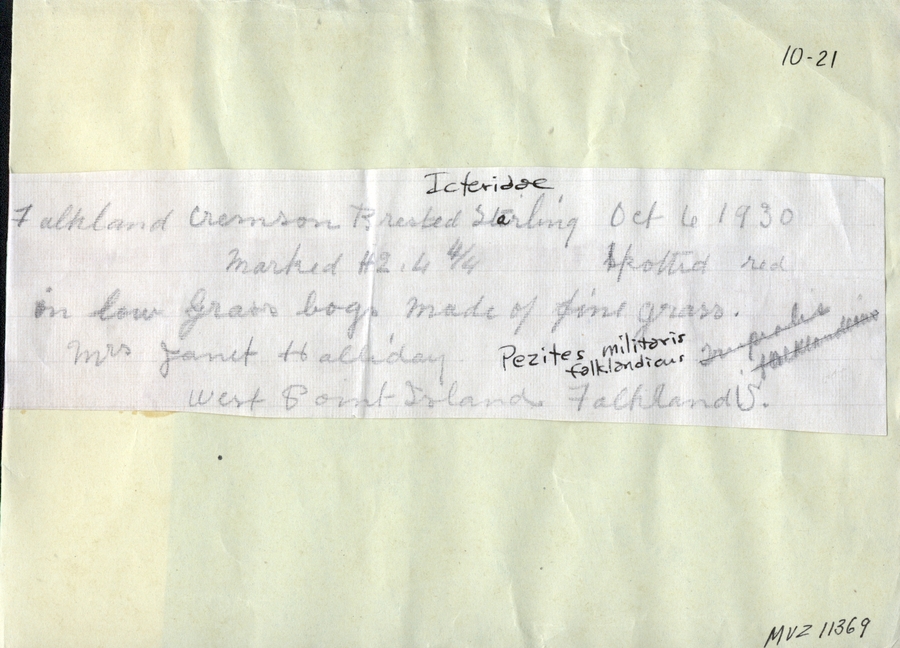 10-21
Icteridae
Falkland Cremson Brested Starling Oct 6 1930
Marked H2.4 4/4 Spotted red
in low Grass bogs made of fine grass.
Mrs Janet Halliday
Pezites militaris
falklandicus
Trupialis
falklandicus
West Point Island Falkland IS.
MVZ 11369